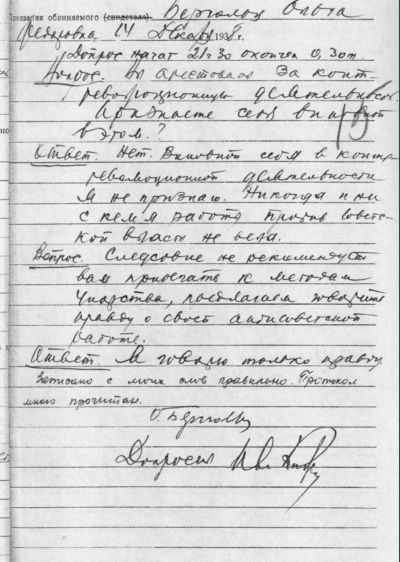 Показания обвиняемого (свидетеля) Берггольц Ольга
Федоровна 14 декабря 1938 г.
Допрос начат 21-30 окончен 0,30 м.
Вопрос. Вы арестованы за контр-
революционную деятельность.
Признаете себя виновной
в этом?
Ответ. Нет. Виновной себя в контр-
революционной деятельности
я не признаю. Никогда и ни
с кем я работы против совет-
ской власти не вела.
Вопрос. Следствие не рекомендует
вам прибегать к методам
упорства, предлагаем говорить
правду о своей антисоветской
работе.
Ответ. Я говорю только правду.
Записано с моих слов правильно. Протокол
мною прочитан.
О. Берггольц
Допросил